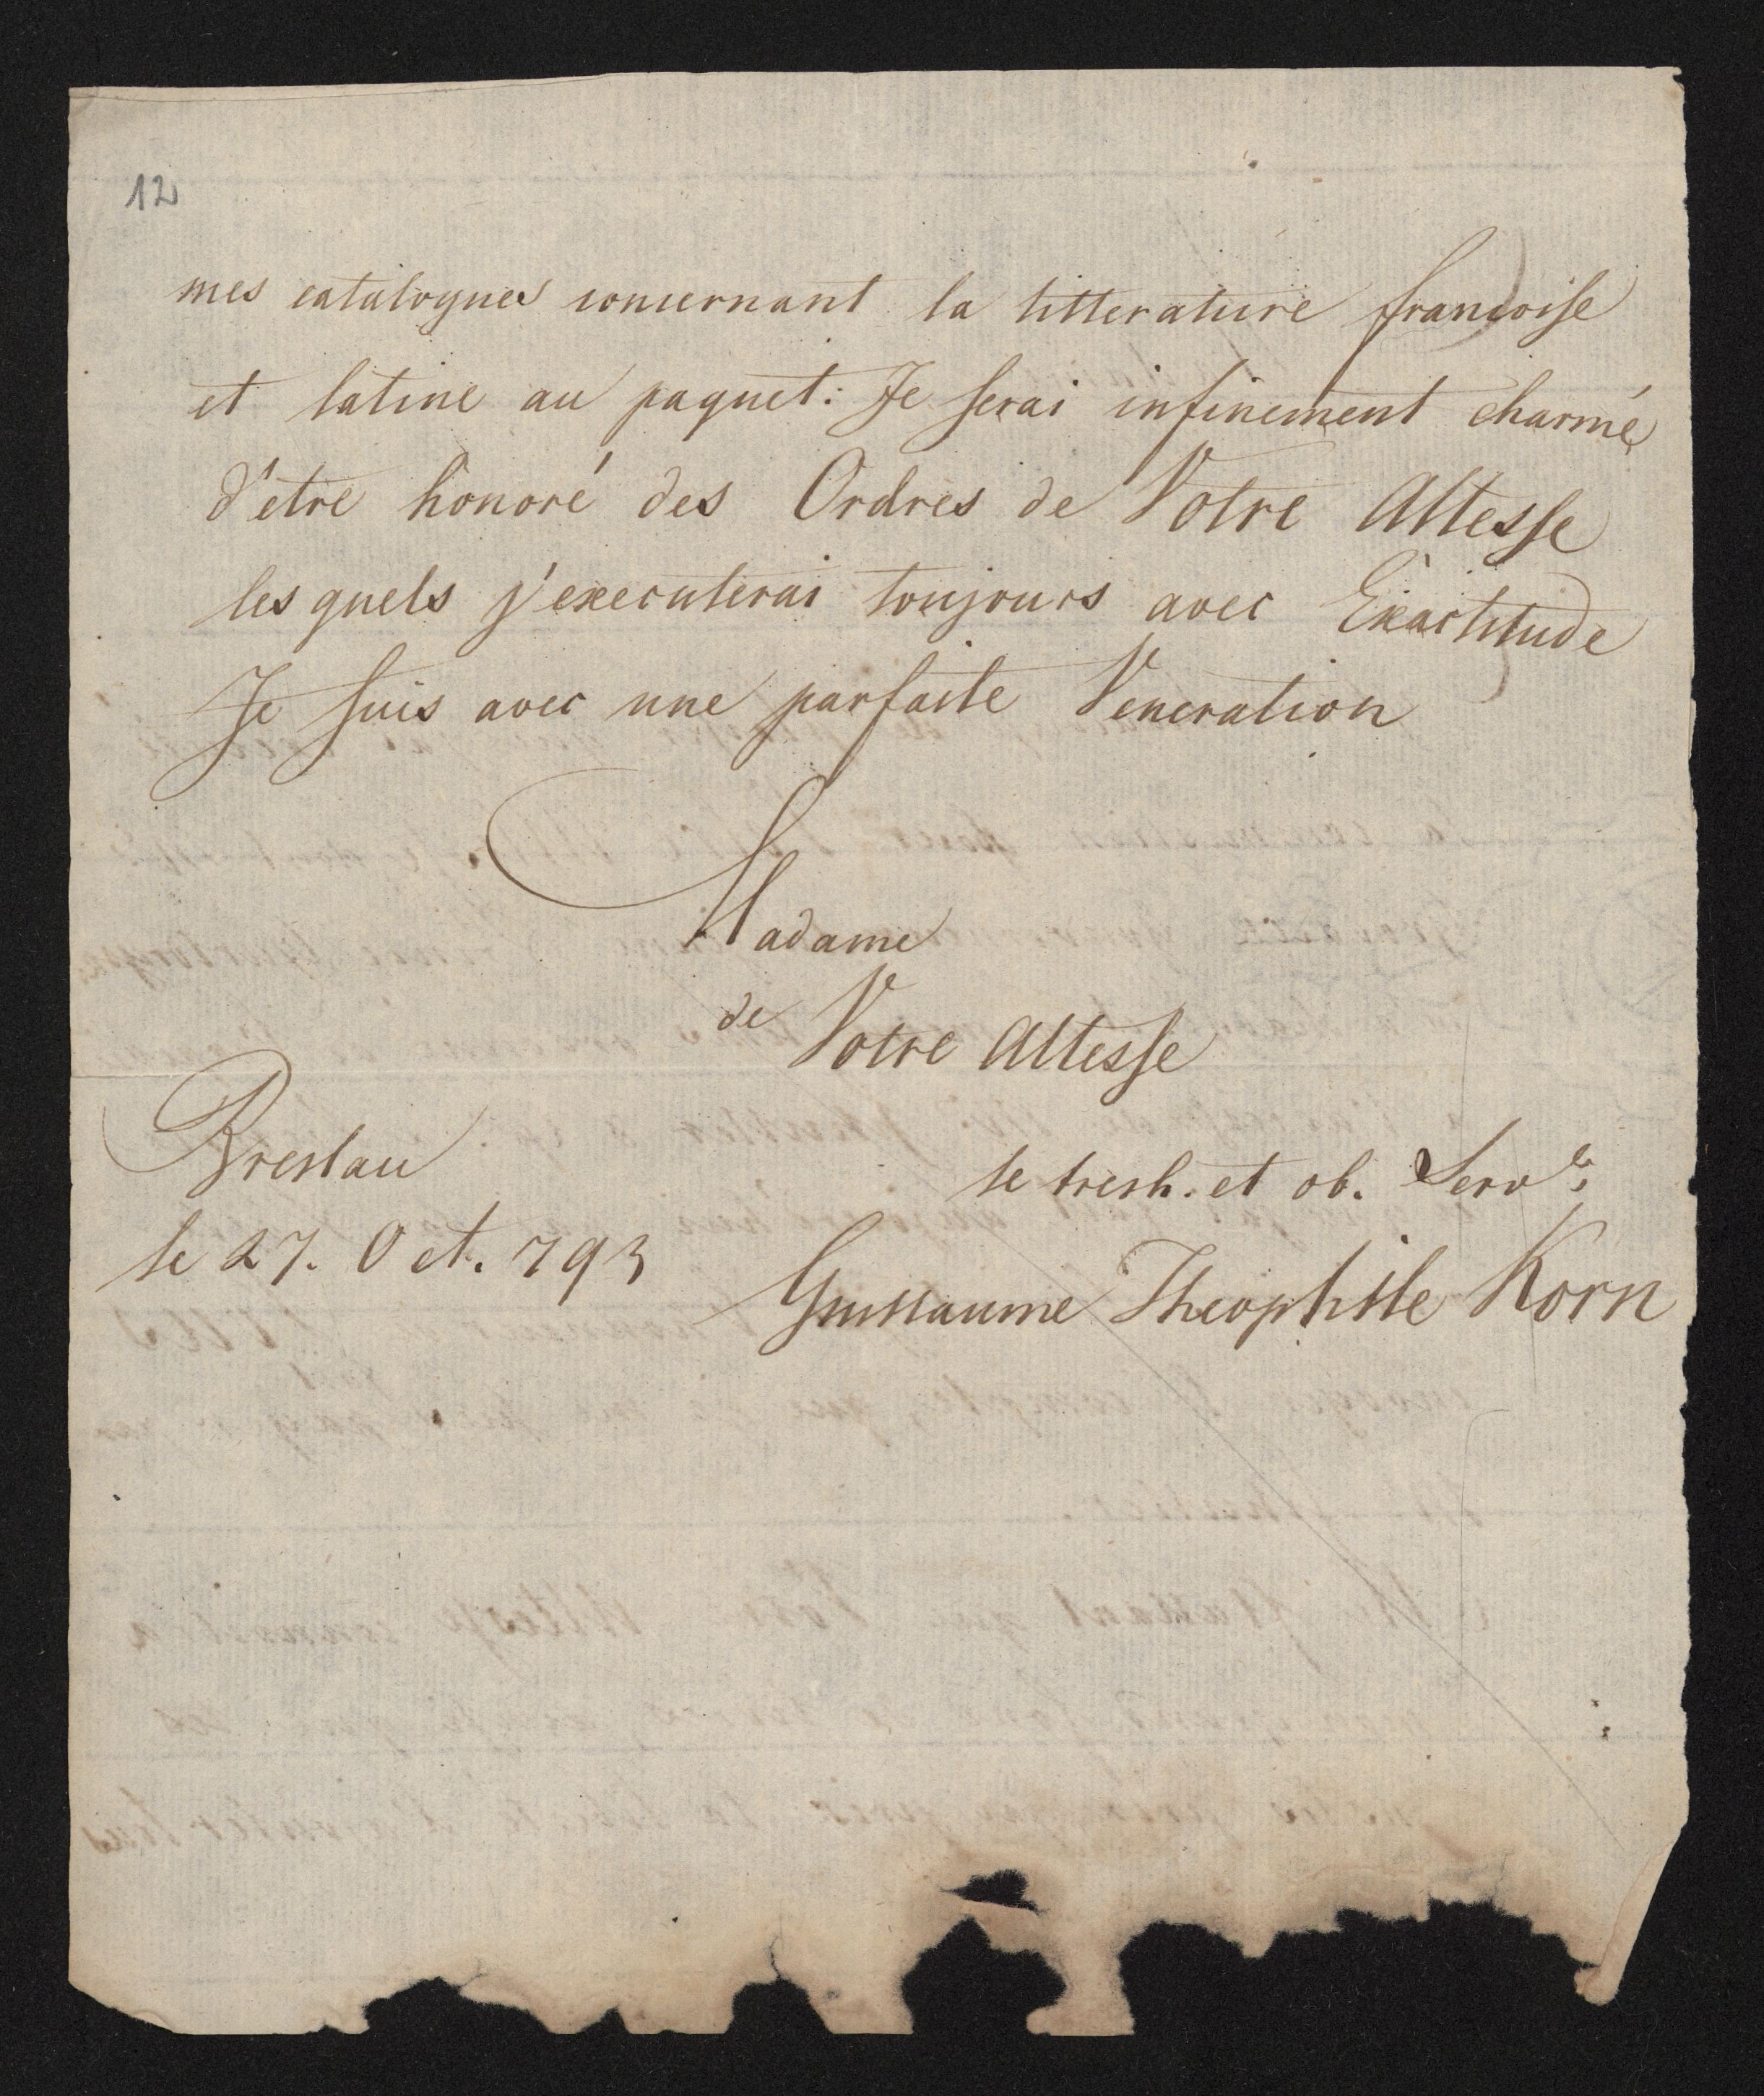 12
mes catalogues concernant la litterature françoise
et latine au paquet: Je serai infinement charmé
d'etre honoré des Ordres de Votre Altesse
les quels j'executerai toujours avec Exactitude
Je suis avec une parfaite Veneration
Madame
de Votre Altesse
Breslau
le tresh. et ob. Servr.
le 27. Oct. 793
Guillaume Theophile Korn